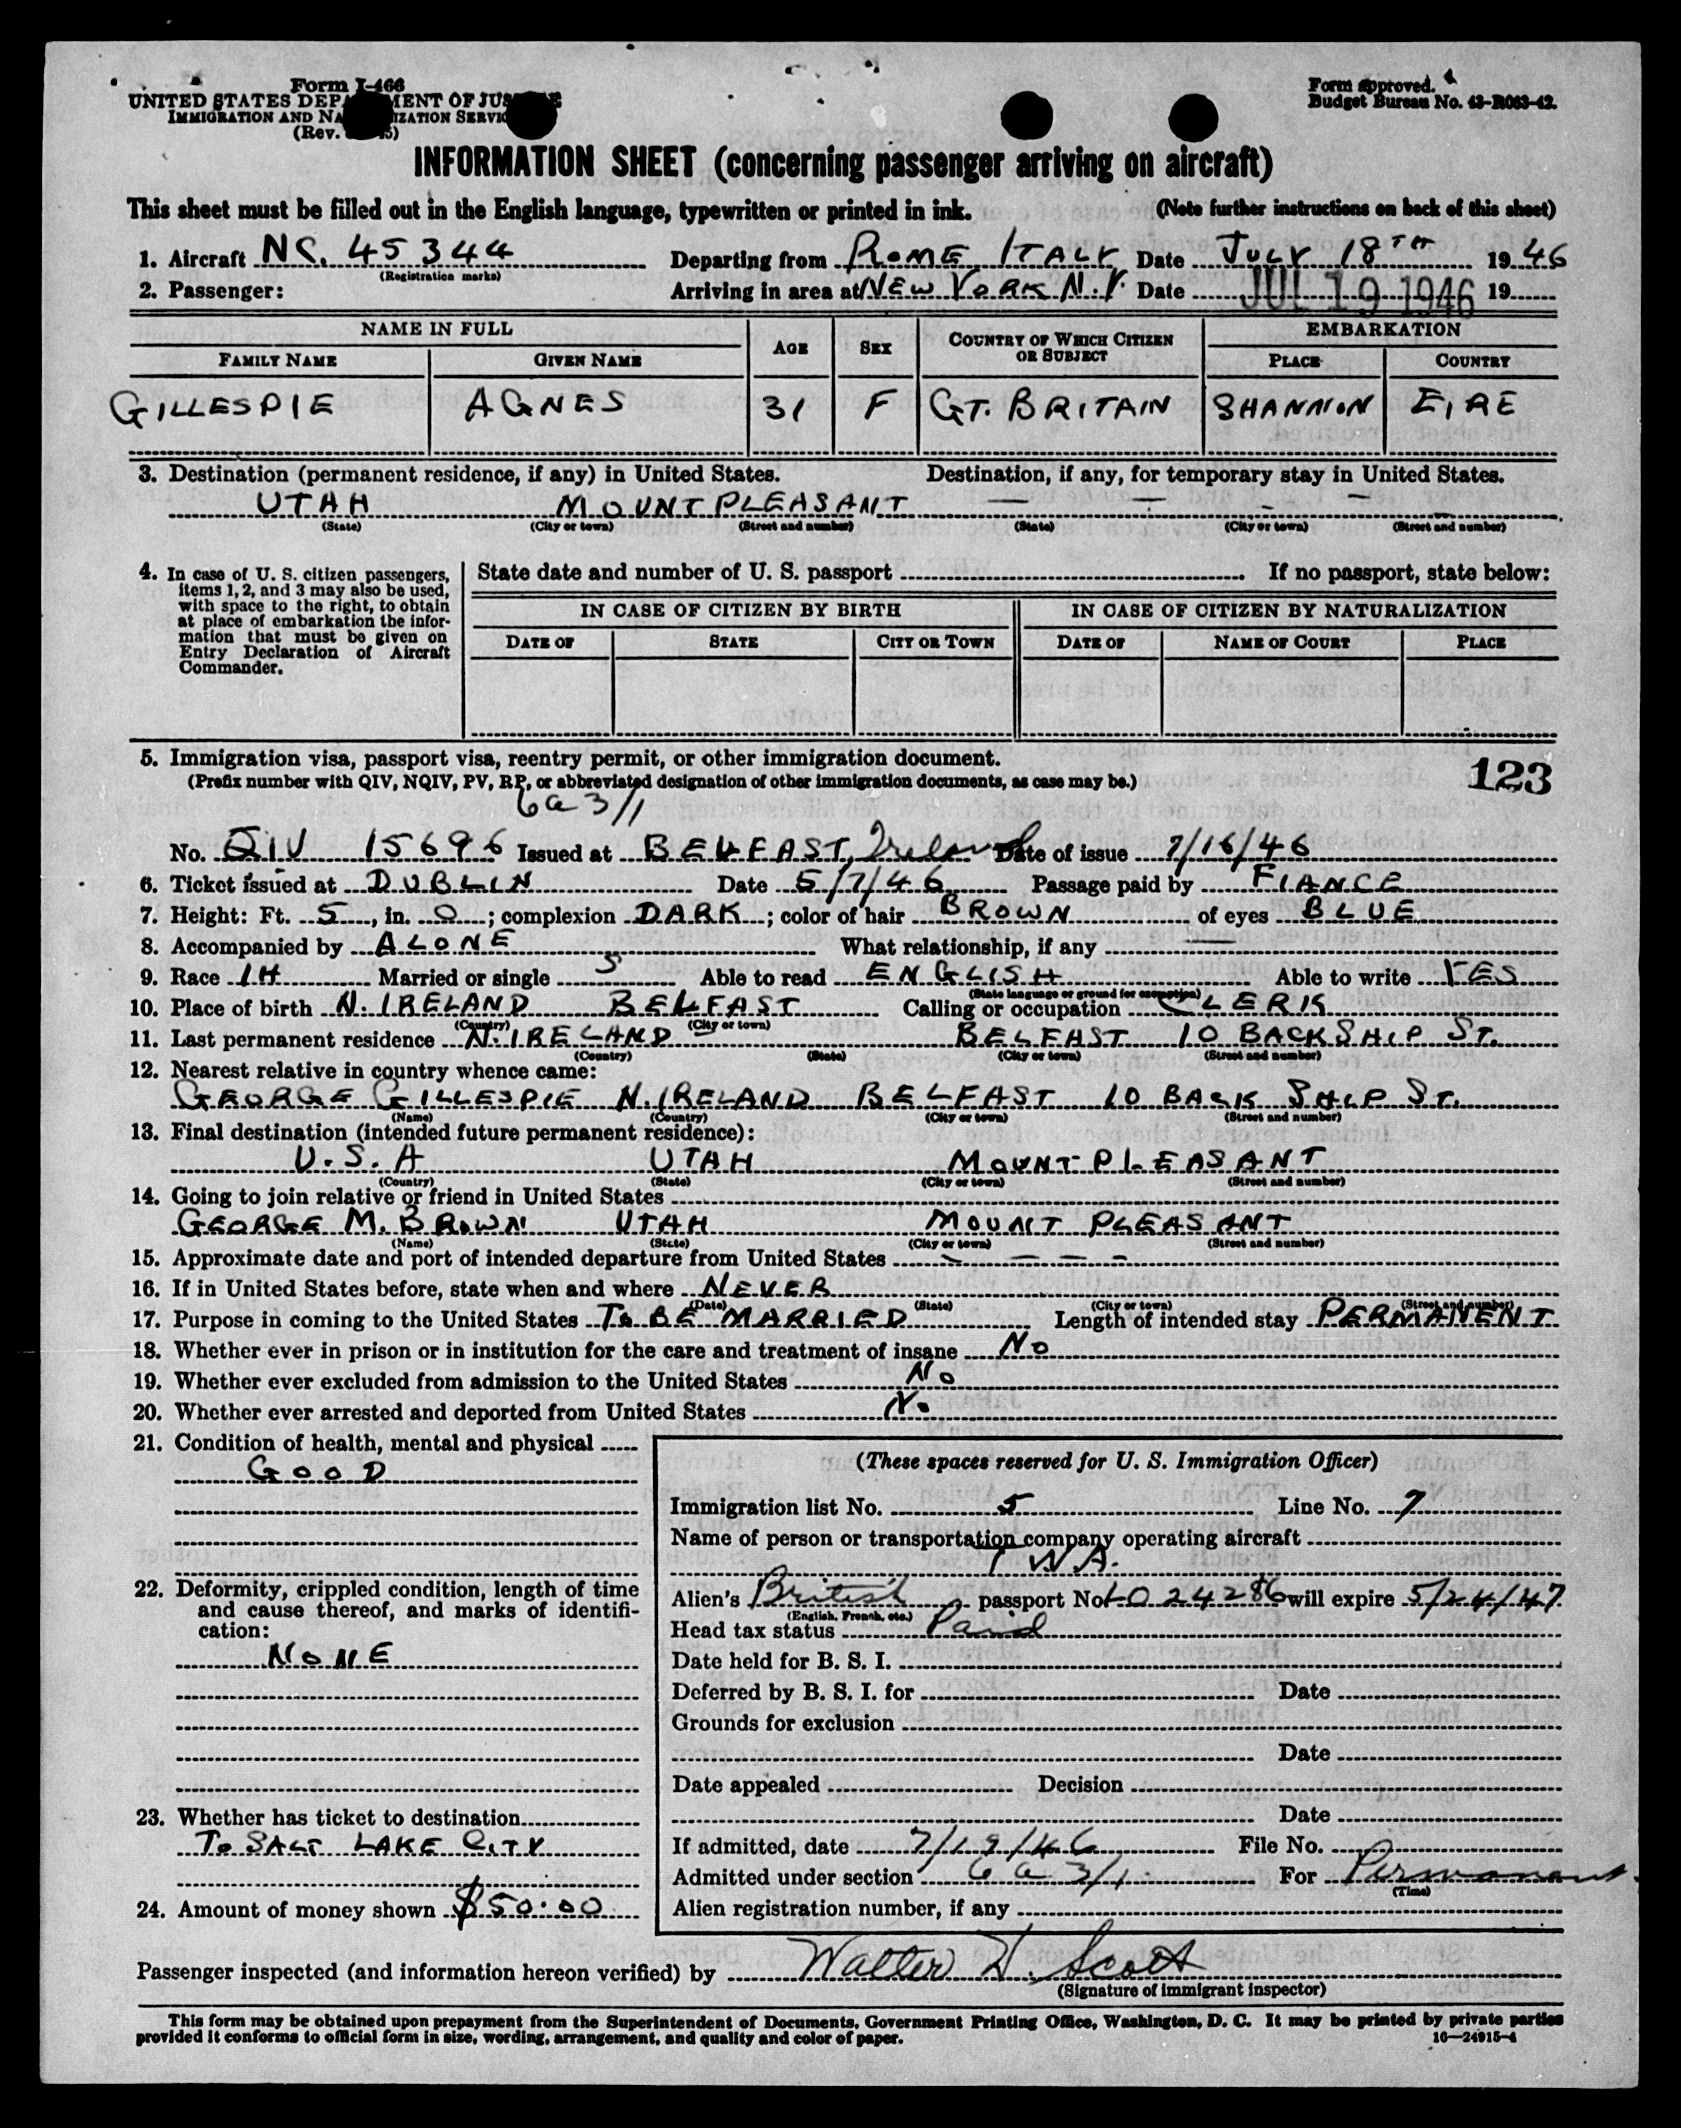 Form I-466
UNITED STATES DEP MENT OF JUS E
IMMIGRATION AND NA IZATION SERVIC
(Rev. 5)
Form approved.
Budget Bureau No. 43-R063-42.
INFORMATION SHEET (concerning passenger arriving on aircraft)
This sheet must be filled out in the English language, typewritten or printed in ink. (Note further instructions on back of this sheet)
1. Aircraft NC. 45344 Departing from ROME ITALY Date JULY 18TH 1946
(Registration marks)
2. Passenger: Arriving in area at NEW YORK N.Y. Date JUL 19 1946 19
NAME IN FULL AGE SEX COUNTRY OF WHICH CITIZEN OR SUBJECT EMBARKATION
FAMILY NAME GIVEN NAME PLACE COUNTRY
GILLESPIE AGNES 31 F GT. BRITAIN SHANNON EIRE
3. Destination (permanent residence, if any) in United States. Destination, if any, for temporary stay in United States.
UTAH MOUNT PLEASANT — — — —
(State) (City or town) (Street and number) (State) (City or town) (Street and number)
4. In case of U. S. citizen passengers,
items 1, 2, and 3 may also be used,
with space to the right, to obtain
at place of embarkation the infor-
mation that must be given on
Entry Declaration of Aircraft
Commander.
State date and number of U. S. passport If no passport, state below:
IN CASE OF CITIZEN BY BIRTH IN CASE OF CITIZEN BY NATURALIZATION
DATE OF STATE CITY OR TOWN DATE OF NAME OF COURT PLACE
5. Immigration visa, passport visa, reentry permit, or other immigration document.
(Prefix number with QIV, NQIV, PV, RP, or abbreviated designation of other immigration documents, as case may be.)
123
6a3/1
No. QIV 15696 Issued at BELFAST, Ireland Date of issue 7/16/46
6. Ticket issued at DUBLIN Date 5/7/46 Passage paid by FIANCE
7. Height: Ft. 5, in. 0; complexion DARK; color of hair BROWN of eyes BLUE
8. Accompanied by ALONE What relationship, if any —
9. Race IH Married or single S Able to read ENGLISH Able to write YES
(State language or ground for exemption)
10. Place of birth N. IRELAND BELFAST Calling or occupation CLERK
(Country) (City or town)
11. Last permanent residence N. IRELAND BELFAST 10 BACK SHIP ST.
(Country) (State) (City or town) (Street and number)
12. Nearest relative in country whence came:
GEORGE GILLESPIE N. IRELAND BELFAST 10 BACK SHIP ST.
(Name) (Country) (City or town) (Street and number)
13. Final destination (intended future permanent residence):
U.S.A UTAH MOUNT PLEASANT
(Country) (State) (City or town) (Street and number)
14. Going to join relative or friend in United States
GEORGE M. BROWN UTAH MOUNT PLEASANT
(Name) (State) (City or town) (Street and number)
15. Approximate date and port of intended departure from United States — — — —
16. If in United States before, state when and where NEVER
(Date) (State) (City or town) (Street and number)
17. Purpose in coming to the United States TO BE MARRIED Length of intended stay PERMANENT
18. Whether ever in prison or in institution for the care and treatment of insane NO
19. Whether ever excluded from admission to the United States NO
20. Whether ever arrested and deported from United States NO
21. Condition of health, mental and physical
GOOD
22. Deformity, crippled condition, length of time
and cause thereof, and marks of identifi-
cation:
NONE
23. Whether has ticket to destination
TO SALT LAKE CITY
24. Amount of money shown $50.00
(These spaces reserved for U. S. Immigration Officer)
Immigration list No. 5 Line No. 7
Name of person or transportation company operating aircraft
TWA.
Alien's British passport No. LO 24286 will expire 5/24/47
(English, French, etc.)
Head tax status Paid
Date held for B. S. I.
Deferred by B. S. I. for Date
Grounds for exclusion
Date
Date appealed Decision
Date
If admitted, date 7/19/46 File No.
Admitted under section 6a3/1 For Permanent
(Time)
Alien registration number, if any
Passenger inspected (and information hereon verified) by Walter H. Scott
(Signature of immigrant inspector)
This form may be obtained upon prepayment from the Superintendent of Documents, Government Printing Office, Washington, D. C. It may be printed by private parties
provided it conforms to official form in size, wording, arrangement, and quality and color of paper. 16—24915-4